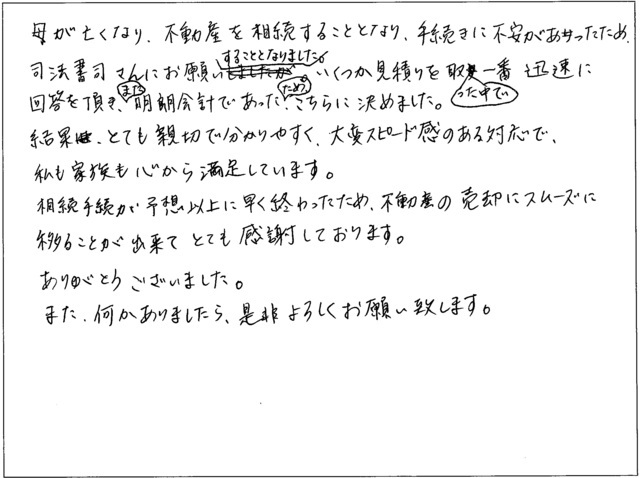 母が亡くなり、不動産を相続することとなり、手続きに不安があったため、
司法書司さんにお願いすることとなりました。いくつか見積りを取った中で、一番迅速に
回答を頂き、また明朗会計であったため、こちらに決めました。
結果、とても親切で分かりやすく、大変スピード感のある対応で、
私も家族も心から満足しています。
相続手続が予想以上に早く終わったため、不動産の売却にスムーズに
移ることが出来てとても感謝しております。
ありがとうございました。
また、何かありましたら、是非よろしくお願い致します。